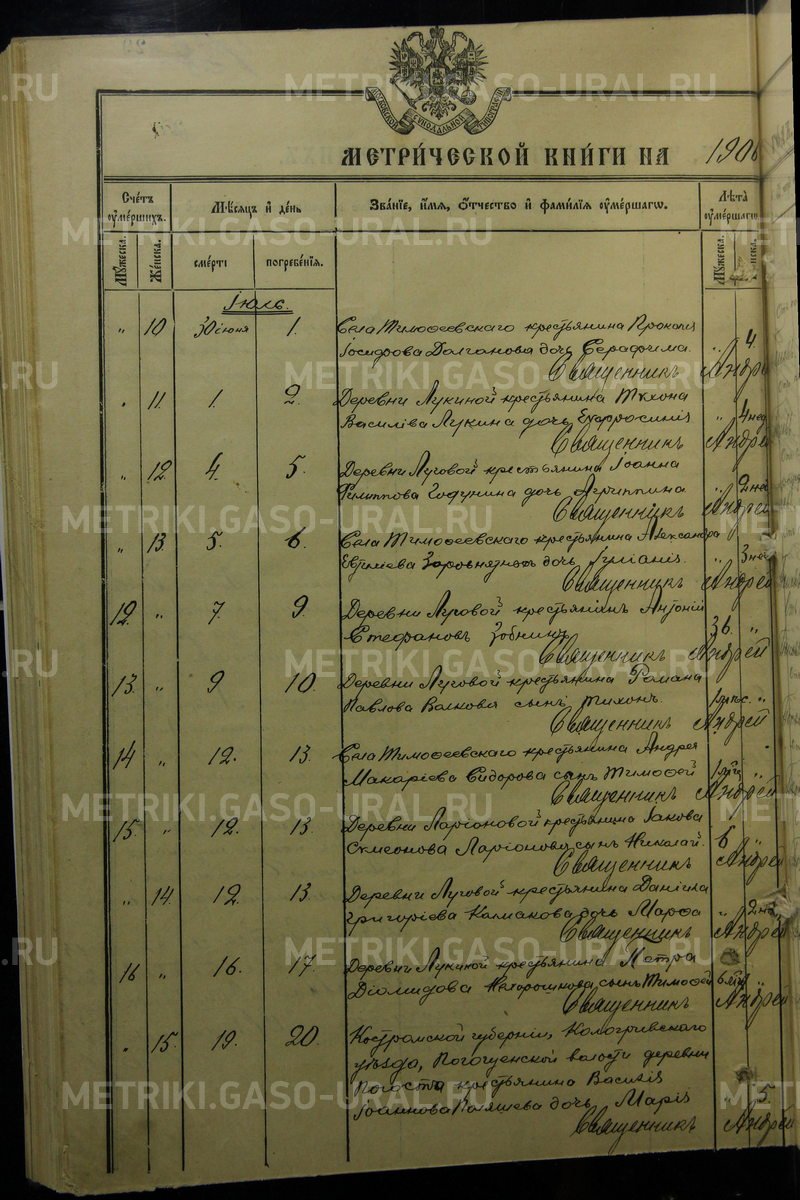 МЕТРИ́ЧЕСКОЙ КНИ́ГИ НА 190
Сче́тъ ᲂу҆ме́ршихъ.
Мѣ́сѧцъ и҆ де́нь
Зва́нїе, и҆́мѧ, ѻ҆́тчество и҆ фами́лїѧ ᲂу҆ме́ршагѡ.
Лѣ́та ᲂу҆ме́ршагѡ
Мꙋ́жеска.
Же́нска.
сме́рти
погребе́нїѧ.
Мꙋ́жеска.
Іюль.
" 10 30 іюня 1. Села Тимоѳеевскаго крестьянина Прокопія
Іосифова Долганова дочь Серафима. " 4.
Священникъ Андрей
" 11. 1. 2. Деревни Лукиной крестьянина Тихона
Василіева Лукина дочь Евфросинія " 4 нед
Священникъ Андрей
" 12. 4. 5. Деревни Луговой крестьянина Іоанна
Филиппова дочь Агриппина " 2 нед
Священникъ Андрей
" 13. 5. 6. Села Тимоѳеевскаго крестьянина Александра
Евѳиміева дочь Іуліанія. " 3 нед
Священникъ Андрей
12. " 7. 9. Деревни Луговой крестьянинъ Антоній
Стефановъ Зобнинъ 36. "
Священникъ Андрей
13. " 9 10. Деревни Луговой крестьянина Романа
Павлова Волкова сынъ Тихонъ. "
Священникъ Андрей
14 " 12. 13. Села Тимоѳеевскаго крестьянина Андрея
Макаріева Сидорова сынъ Тимоѳей "
Священникъ Андрей
15. " 12. 13. Деревни Ларіоновой крестьянина Іакова
Симеонова Ларіонова сынъ Николай. 6 "
Священникъ Андрей
" 14. 12 13. Деревни Луговой крестьянина Даніила
Григоріева Калмакова дочь Марѳа " 2 нед
Священникъ Андрей
16 " 16. 17. Деревни Лукиной крестьянина Петра
Діомидова сынъ Тимоѳей "
Священникъ Андрей
" 15. 19. 20. Костромской губерніи, Кологривскаго
уѣзда, волости деревни
Погоста крестьянина Василія
Іоаннова дочь Марія " 5.
Священникъ Андрей
METRIKI.GASO-URAL.RU